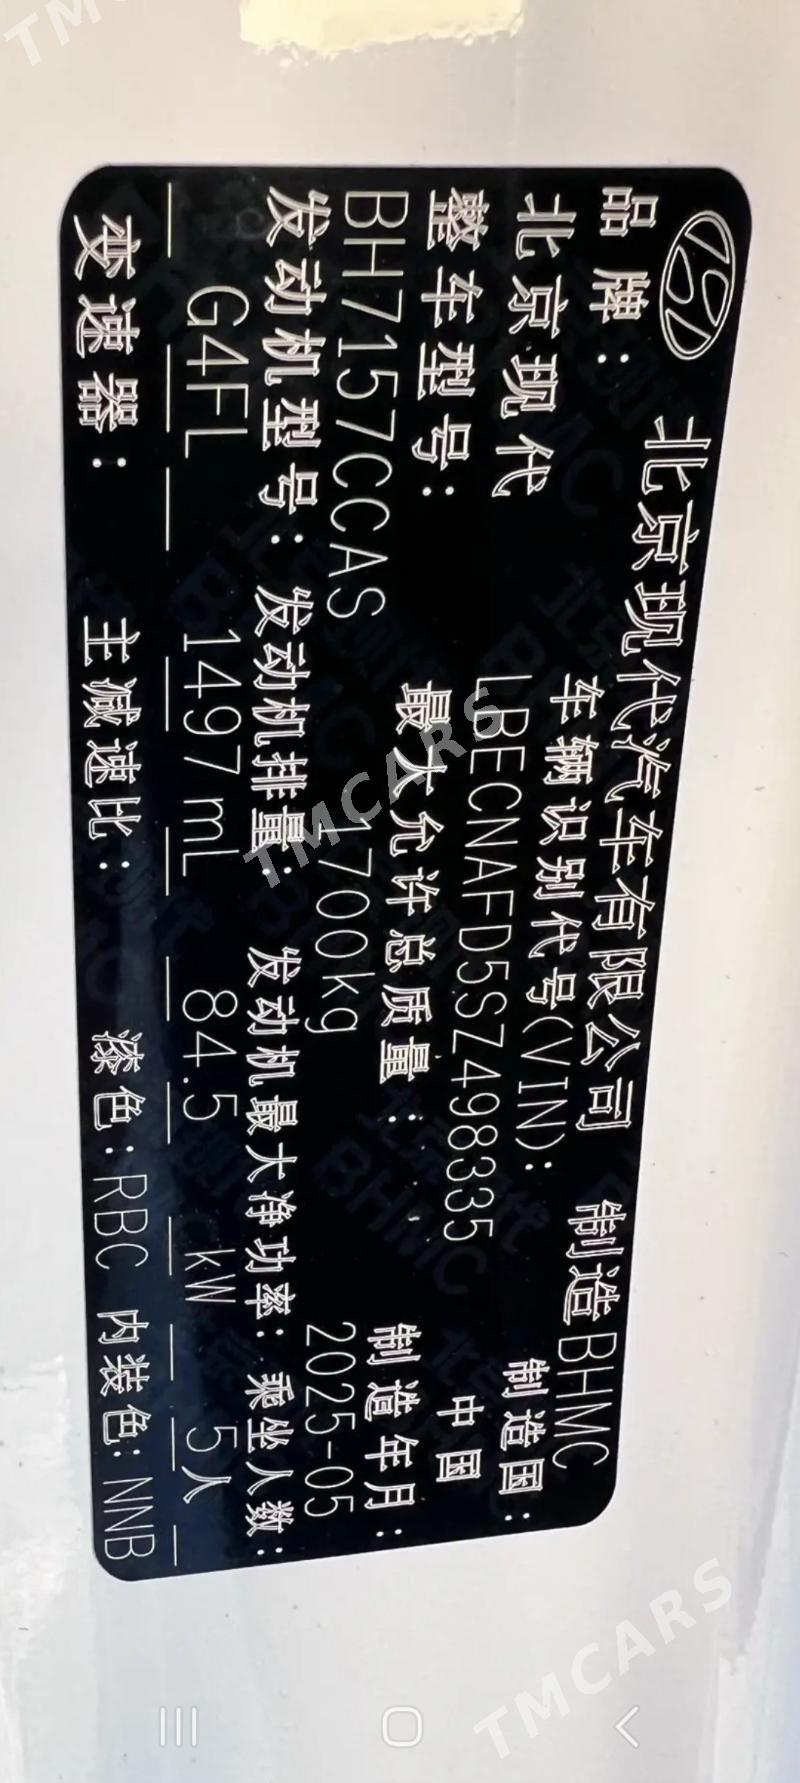 北京现代汽车有限公司 制造BHMC
品牌: 车辆识别代号(VIN): 制造国:
北京现代 LBECNAFD5SZ498335 中国
整车型号: 最大允许总质量: 制造年月:
BH7157CCAS 1700kg 2025-05
发动机型号: 发动机排量: 发动机最大净功率: 乘坐人数:
G4FL 1497 mL 84.5 kW 5人
变速器: 主减速比: 漆色: RBC 内装色: NNB
TMCARS
TMCARS